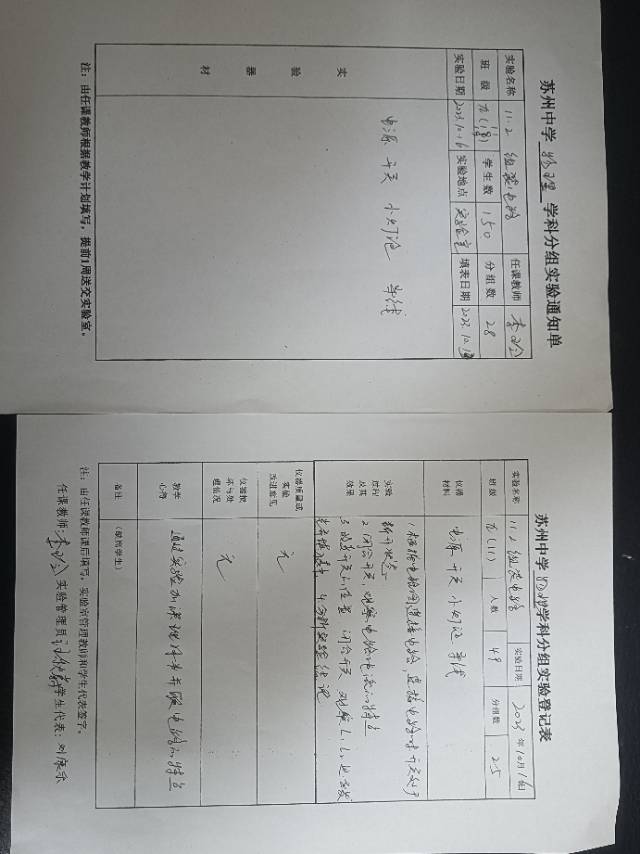 苏州中学 物理 学科分组实验通知单
实验名称 11.2 组装电路 任课教师
班级 学生数 150 分组数 28
实验日期 2023.10.16 实验地点 实验室 填表日期
实验器材
电源 开关 小灯泡 导线
注：由任课教师根据教学计划填写，提前1周送交实验室。
苏州中学 物理 学科分组实验登记表
实验名称 11.2 组装电路 实验日期 2023年10月16日
班级 人数 49 分组数 25
仪器材料 电源 开关 小灯泡 导线
实验过程及其效果
1.根据电路图,连接电路,连接电路时开关处于
断开状态
2.闭合开关,观察电路电流的特点
3.改变开关的位置 闭合开关 观察L₁L₂是否发
4.分析实验结论
仪器质量或实验改进意见 无
仪器损坏与处理情况 无
教学心得 通过实验加深理解串并联电路的特点
备注 (缺席学生)
注：由任课教师课后填写，实验室管理教师和学生代表签字。
任课教师: 实验管理员: 学生代表: